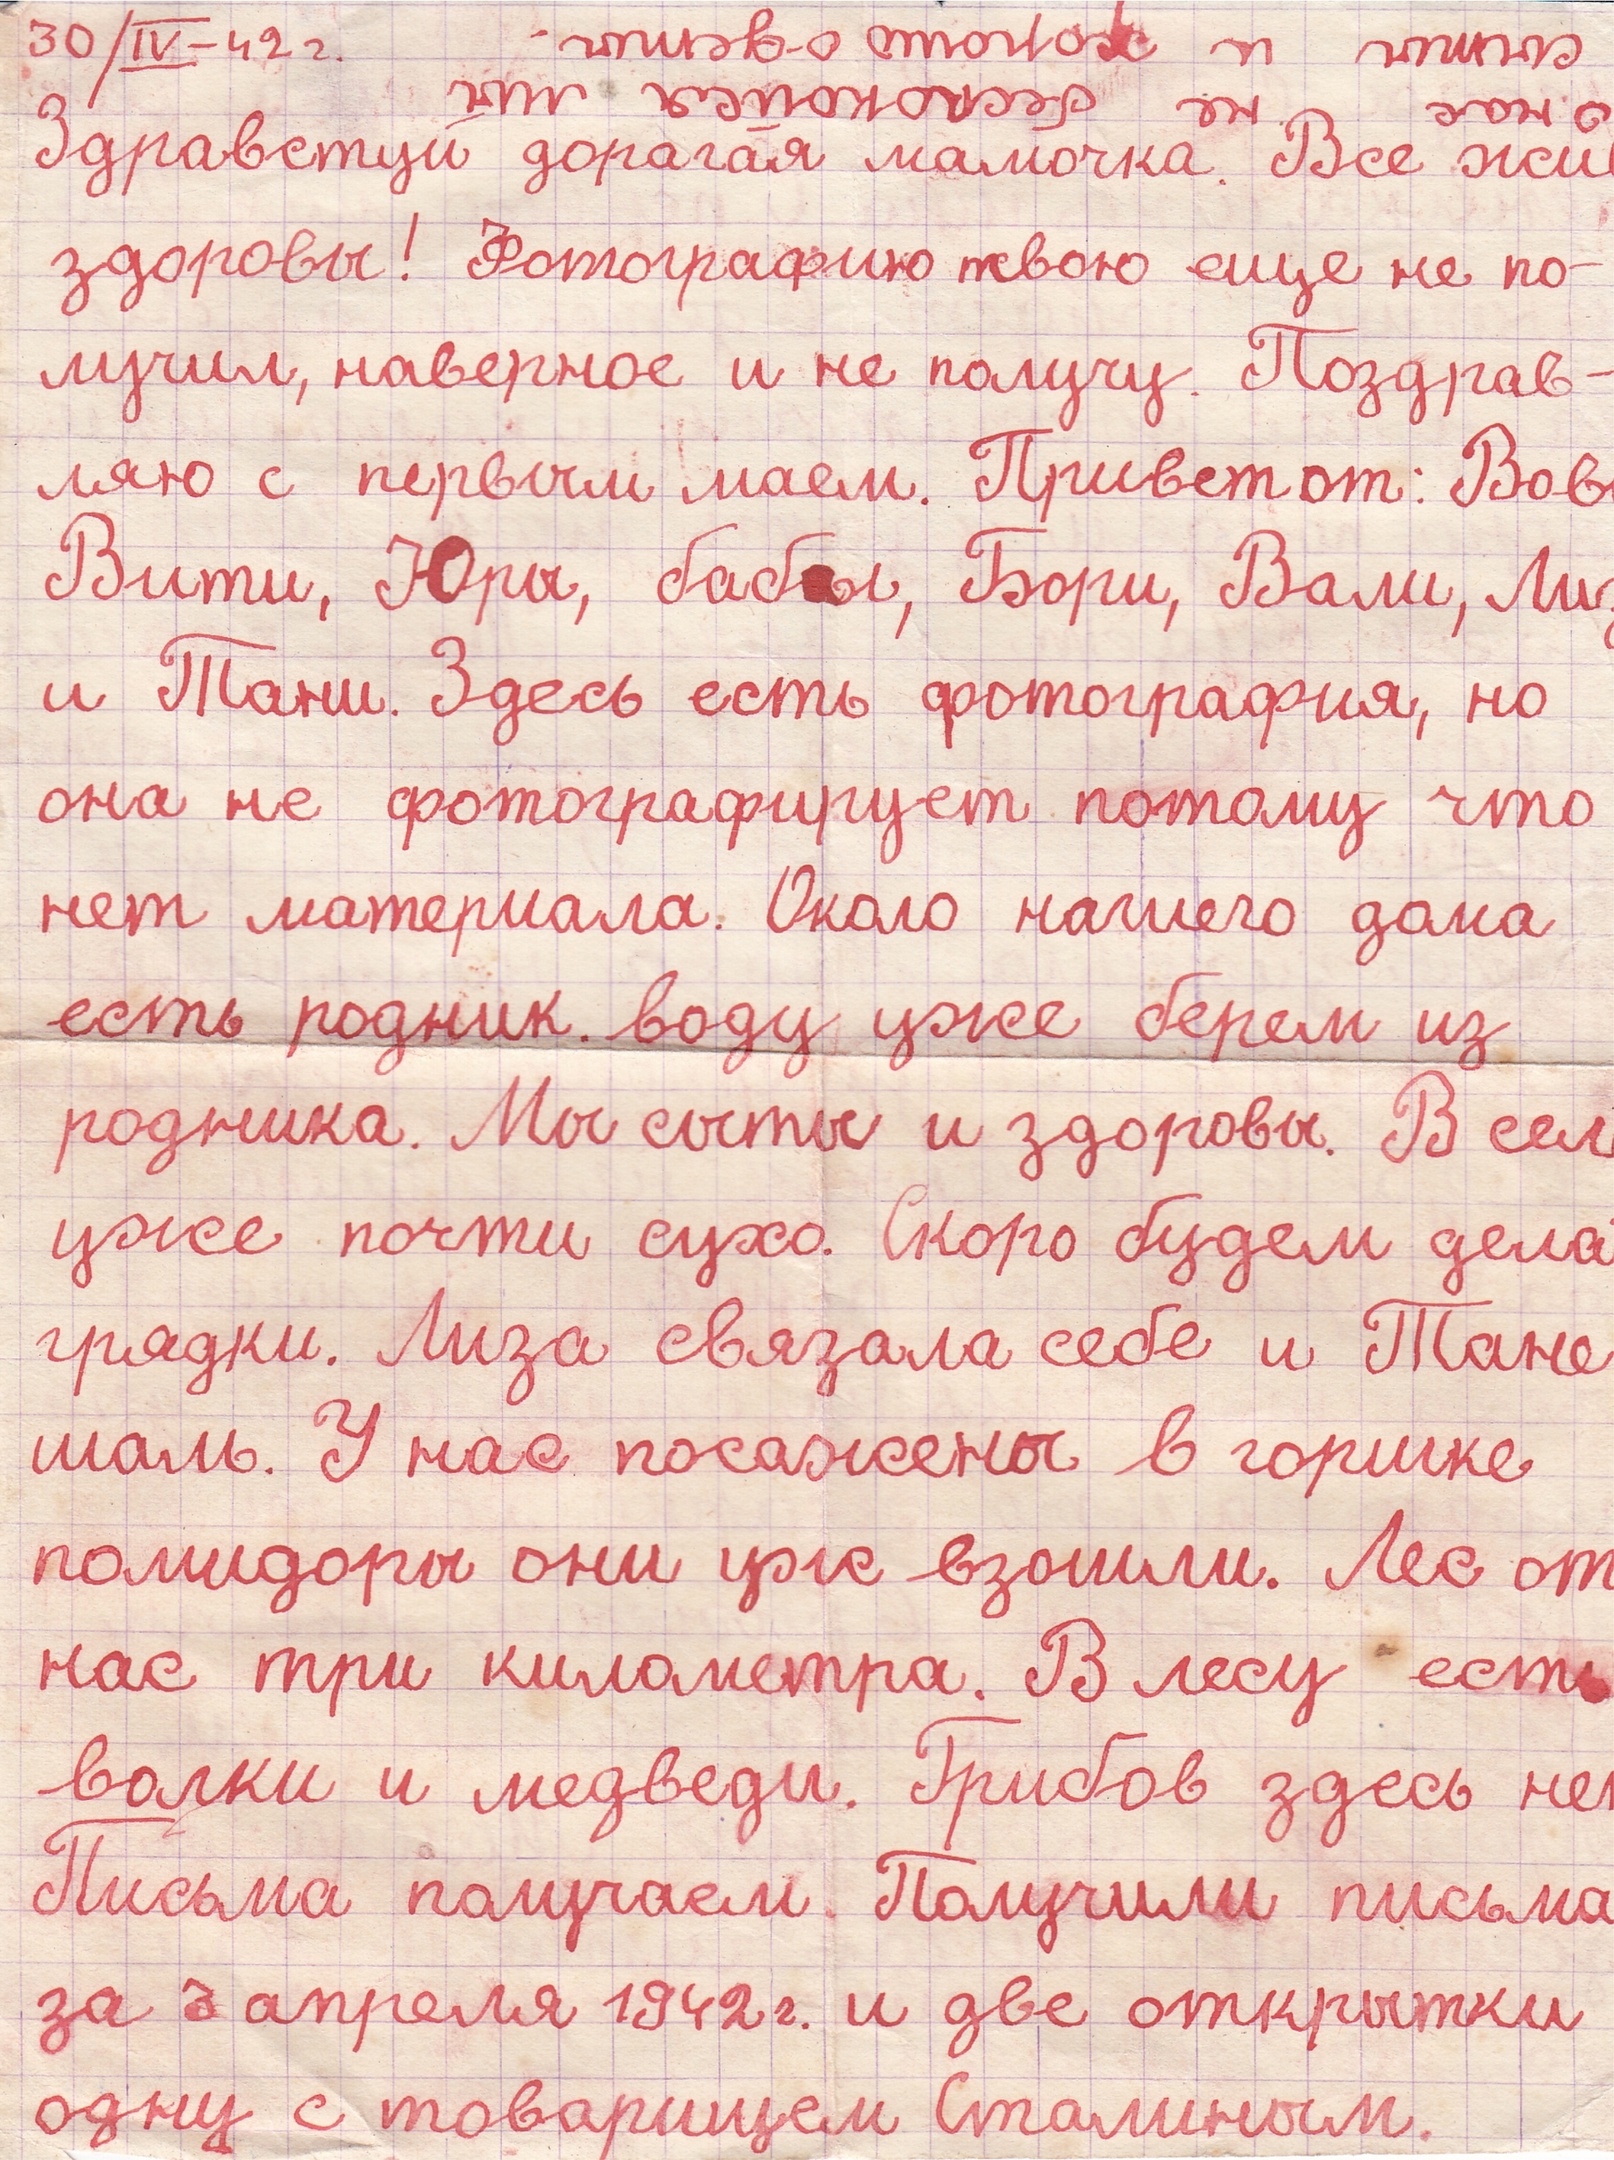 30/IV-42 г.
о нас не беспокойся мы
сыты и хорошо одеты.
Здравствуй дорагая мамочка. Все жив
здоровы! Фотографию твою еще не по-
лучил, наверное и не получу. Поздрав-
ляю с первым маем. Привет от: Вов
Вити, Юры, бабы, Бори, Вали, Лиз
и Тани. Здесь есть фотография, но
она не фотографирует потому что
нет материала. Около нашего дома
есть родник. воду уже берем из
родника. Мы сыты и здоровы. В сел
уже почти сухо. Скоро будем дела
грядки. Лиза связала себе и Тане
шаль. У нас посажены в горшке
помидоры они уже взошли. Лес от
нас три километра. В лесу есть
волки и медведи. Грибов здесь нет
Письма получаем. Получили письма
за 3 апреля 1942 г. и две открытки
одну с товарищем Сталиным.